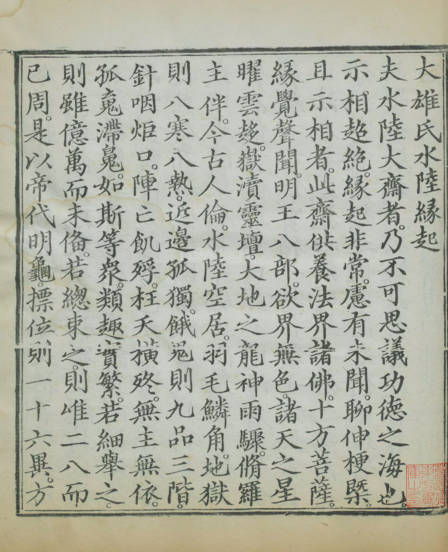 大雄氏水陸緣起
夫水陸大齋者乃不可思議功德之海也
示相超絶緣起非常慮有未聞聊伸梗槩
且示相者此齋供養法界諸佛十方菩薩
緣覺聲聞明王八部欲界無色諸天之星
曜雲趂嶽瀆靈壇大地之龍神雨驟脩羅
主伴今古人倫水陸空居羽毛鱗角地獄
則八寒八熱近邊孤獨餓鬼則九品三階
針咽炬口陣亡飢殍枉夭橫終無主無依
孤䰟滯鬼如斯等衆類趣寔繁若細舉之
則雖億萬而未俻若總束之則唯二八而
已周是以帝代明龜標位則一十六異方